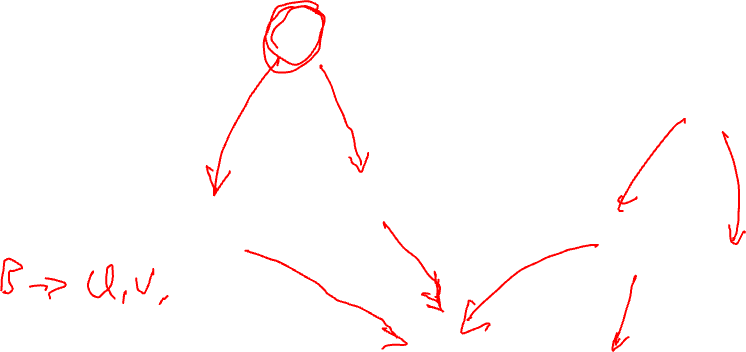 B → U, V,